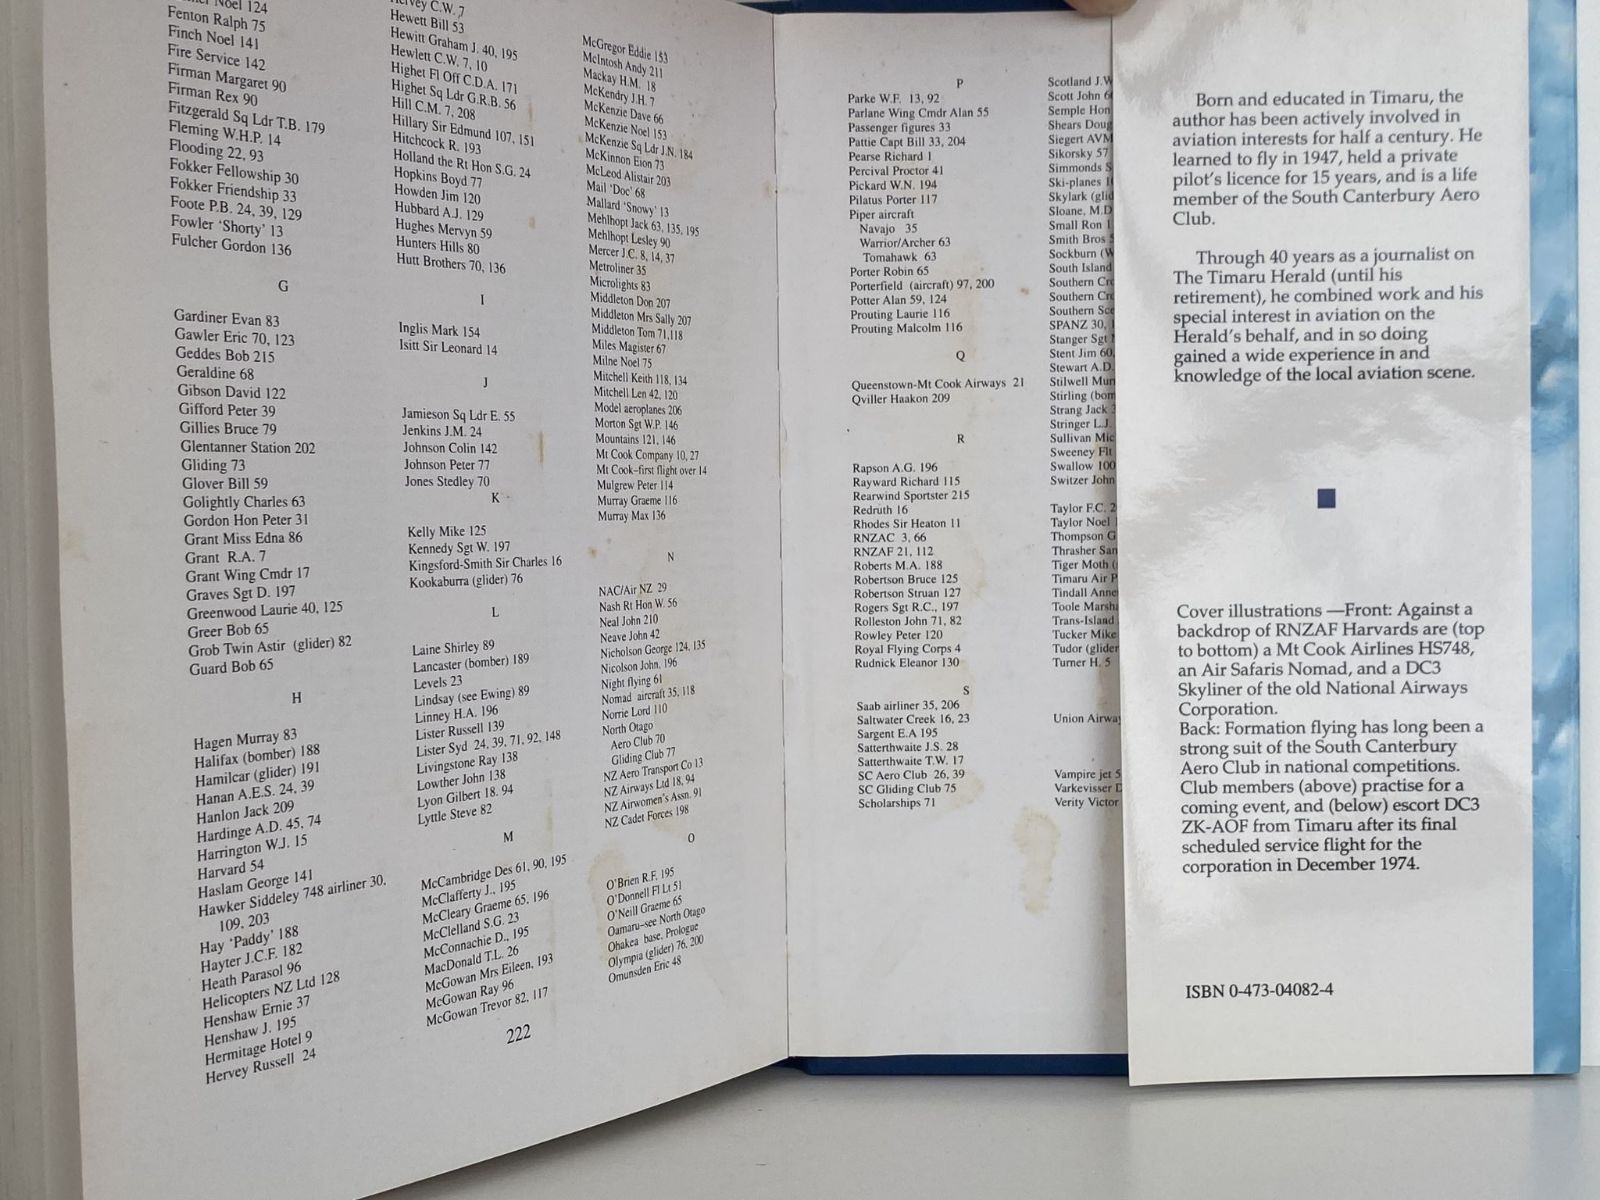 Noel 124
Fenton Ralph 75
Finch Noel 141
Fire Service 142
Firman Margaret 90
Firman Rex 90
Fitzgerald Sq Ldr T.B. 179
Fleming W.H.P. 14
Flooding 22, 93
Fokker Fellowship 30
Fokker Friendship 33
Foote P.B. 24, 39, 129
Fowler 'Shorty' 13
Fulcher Gordon 136
G
Gardiner Evan 83
Gawler Eric 70, 123
Geddes Bob 215
Geraldine 68
Gibson David 122
Gifford Peter 39
Gillies Bruce 79
Glentanner Station 202
Gliding 73
Glover Bill 59
Golightly Charles 63
Gordon Hon Peter 31
Grant Miss Edna 86
Grant R.A. 7
Grant Wing Cmdr 17
Graves Sgt D. 197
Greenwood Laurie 40, 125
Greer Bob 65
Grob Twin Astir (glider) 82
Guard Bob 65
H
Hagen Murray 83
Halifax (bomber) 188
Hamilcar (glider) 191
Hanan A.E.S. 24, 39
Hanlon Jack 209
Hardinge A.D. 45, 74
Harrington W.J. 15
Harvard 54
Haslam George 141
Hawker Siddeley 748 airliner 30,
109, 203
Hay 'Paddy' 188
Hayter J.C.F. 182
Heath Parasol 96
Helicopters NZ Ltd 128
Henshaw Ernie 37
Henshaw J. 195
Hermitage Hotel 9
Hervey Russell 24
C.W. 7
Hewett Bill 53
Hewitt Graham J. 40, 195
Hewlett C.W. 7, 10
Highet Fl Off C.D.A. 171
Highet Sq Ldr G.R.B. 56
Hill C.M. 7, 208
Hillary Sir Edmund 107, 151
Hitchcock R. 193
Holland the Rt Hon S.G. 24
Hopkins Boyd 77
Howden Jim 120
Hubbard A.J. 129
Hughes Mervyn 59
Hunters Hills 80
Hutt Brothers 70, 136
I
Inglis Mark 154
Isitt Sir Leonard 14
J
Jamieson Sq Ldr E. 55
Jenkins J.M. 24
Johnson Colin 142
Johnson Peter 77
Jones Stedley 70
K
Kelly Mike 125
Kennedy Sgt W. 197
Kingsford-Smith Sir Charles 16
Kookaburra (glider) 76
L
Laine Shirley 89
Lancaster (bomber) 189
Levels 23
Lindsay (see Ewing) 89
Linney H.A. 196
Lister Russell 139
Lister Syd 24, 39, 71, 92, 148
Livingstone Ray 138
Lowther John 138
Lyon Gilbert 18. 94
Lyttle Steve 82
M
McCambridge Des 61, 90, 195
McClafferty J., 195
McCleary Graeme 65, 196
McClelland S.G. 23
McConnachie D., 195
MacDonald T.L. 26
McGowan Mrs Eileen, 193
McGowan Ray 96
McGowan Trevor 82, 117
McGregor Eddie 153
McIntosh Andy 211
Mackay H.M. 18
McKendry J.H. 7
McKenzie Dave 66
McKenzie Noel 153
McKenzie Sq Ldr J.N. 184
McKinnon Eion 73
McLeod Alistair 203
Mail 'Doc' 68
Mallard 'Snowy' 13
Mehlhopt Jack 63, 135, 195
Mehlhopt Lesley 90
Mercer J.C. 8, 14, 37
Metroliner 35
Microlights 83
Middleton Don 207
Middleton Mrs Sally 207
Middleton Tom 71,118
Miles Magister 67
Milne Noel 75
Mitchell Keith 118, 134
Mitchell Len 42, 120
Model aeroplanes 206
Morton Sgt W.P. 146
Mountains 121, 146
Mt Cook Company 10, 27
Mt Cook–first flight over 14
Mulgrew Peter 114
Murray Graeme 116
Murray Max 136
N
NAC/Air NZ 29
Nash Rt Hon W. 56
Neal John 210
Neave John 42
Nicholson George 124, 135
Nicolson John, 196
Night flying 61
Nomad aircraft 35, 118
Norrie Lord 110
North Otago
Aero Club 70
Gliding Club 77
NZ Aero Transport Co 13
NZ Airways Ltd 18, 94
NZ Airwomen's Assn. 91
NZ Cadet Forces 198
O
O'Brien R.F. 195
O'Donnell Fl Lt 51
O'Neill Graeme 65
Oamaru–see North Otago
Ohakea base, Prologue
Olympia (glider) 76, 200
Omunsden Eric 48
222
P
Parke W.F. 13, 92
Parlane Wing Cmdr Alan 55
Passenger figures 33
Pattie Capt Bill 33, 204
Pearse Richard 1
Percival Proctor 41
Pickard W.N. 194
Pilatus Porter 117
Piper aircraft
Navajo 35
Warrior/Archer 63
Tomahawk 63
Porter Robin 65
Porterfield (aircraft) 97, 200
Potter Alan 59, 124
Prouting Laurie 116
Prouting Malcolm 116
Q
Queenstown-Mt Cook Airways 21
Qviller Haakon 209
R
Rapson A.G. 196
Rayward Richard 115
Rearwind Sportster 215
Redruth 16
Rhodes Sir Heaton 11
RNZAC 3, 66
RNZAF 21, 112
Roberts M.A. 188
Robertson Bruce 125
Robertson Struan 127
Rogers Sgt R.C., 197
Rolleston John 71, 82
Rowley Peter 120
Royal Flying Corps 4
Rudnick Eleanor 130
S
Saab airliner 35, 206
Saltwater Creek 16, 23
Sargent E.A 195
Satterthwaite J.S. 28
Satterthwaite T.W. 17
SC Aero Club 26, 39
SC Gliding Club 75
Scholarships 71
Scotland J.W
Scott John
Semple Hon
Shears Doug
Siegert AVM
Sikorsky 57
Simmonds
Ski-planes
Skylark
Sloane, M.D
Small Ron
Smith Bros
Sockburn
South Island
Southern
Southern
Southern
SPANZ 30,
Stanger Sgt
Stent Jim 60,
Stewart A.D.
Stilwell
Stirling
Strang Jack
Stringer L.J.
Sullivan
Sweeney
Swallow 100
Switzer John
Taylor F.C.
Taylor Noel
Thompson
Thrasher
Tiger Moth
Timaru Air
Tindall
Toole
Trans-Island
Tucker Mike
Tudor
Turner H. 5
Union
Vampire jet
Varkevisser
Verity Victor
Born and educated in Timaru, the
author has been actively involved in
aviation interests for half a century. He
learned to fly in 1947, held a private
pilot's licence for 15 years, and is a life
member of the South Canterbury Aero
Club.
Through 40 years as a journalist on
The Timaru Herald (until his
retirement), he combined work and his
special interest in aviation on the
Herald's behalf, and in so doing
gained a wide experience in and
knowledge of the local aviation scene.
Cover illustrations —Front: Against a
backdrop of RNZAF Harvards are (top
to bottom) a Mt Cook Airlines HS748,
an Air Safaris Nomad, and a DC3
Skyliner of the old National Airways
Corporation.
Back: Formation flying has long been a
strong suit of the South Canterbury
Aero Club in national competitions.
Club members (above) practise for a
coming event, and (below) escort DC3
ZK-AOF from Timaru after its final
scheduled service flight for the
corporation in December 1974.
ISBN 0-473-04082-4